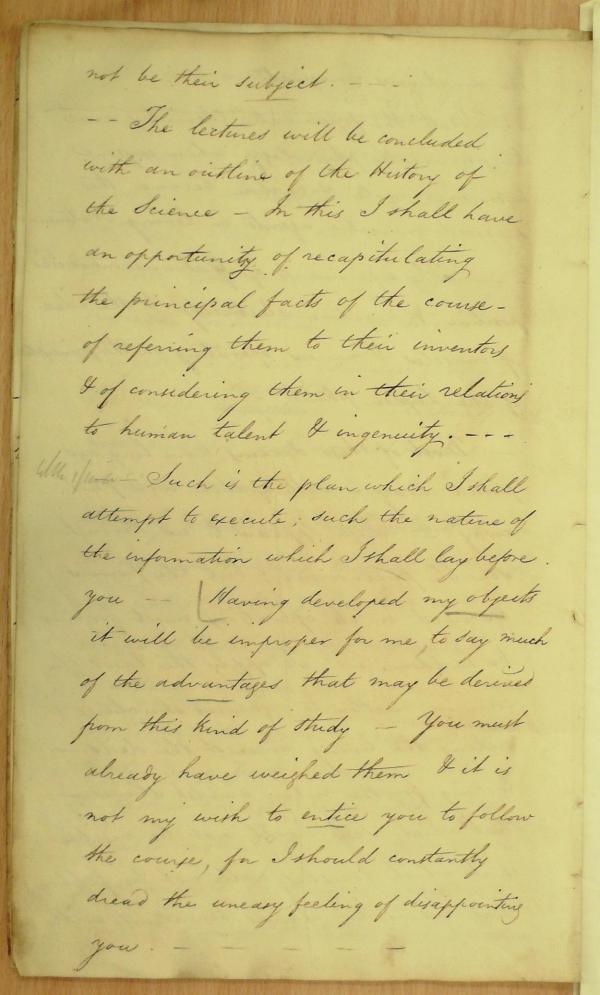 not be their subject. - - -
-- The lectures will be concluded
with an outline of the History of
the Science - In this I shall have
an opportunity of recapitulating
the principal facts of the course -
of referring them to their inventors
& of considering them in their relations
to human talent & ingenuity. - - -
Such is the plan which I shall
attempt to execute; such the nature of
the information which I shall lay before
you -- Having developed my objects
it will be improper for me, to say much
of the advantages that may be derived
from this kind of study - You must
already have weighed them & it is
not my wish to entice you to follow
the course, for I should constantly
dread the uneasy feeling of disappointing
you. - - - - - -